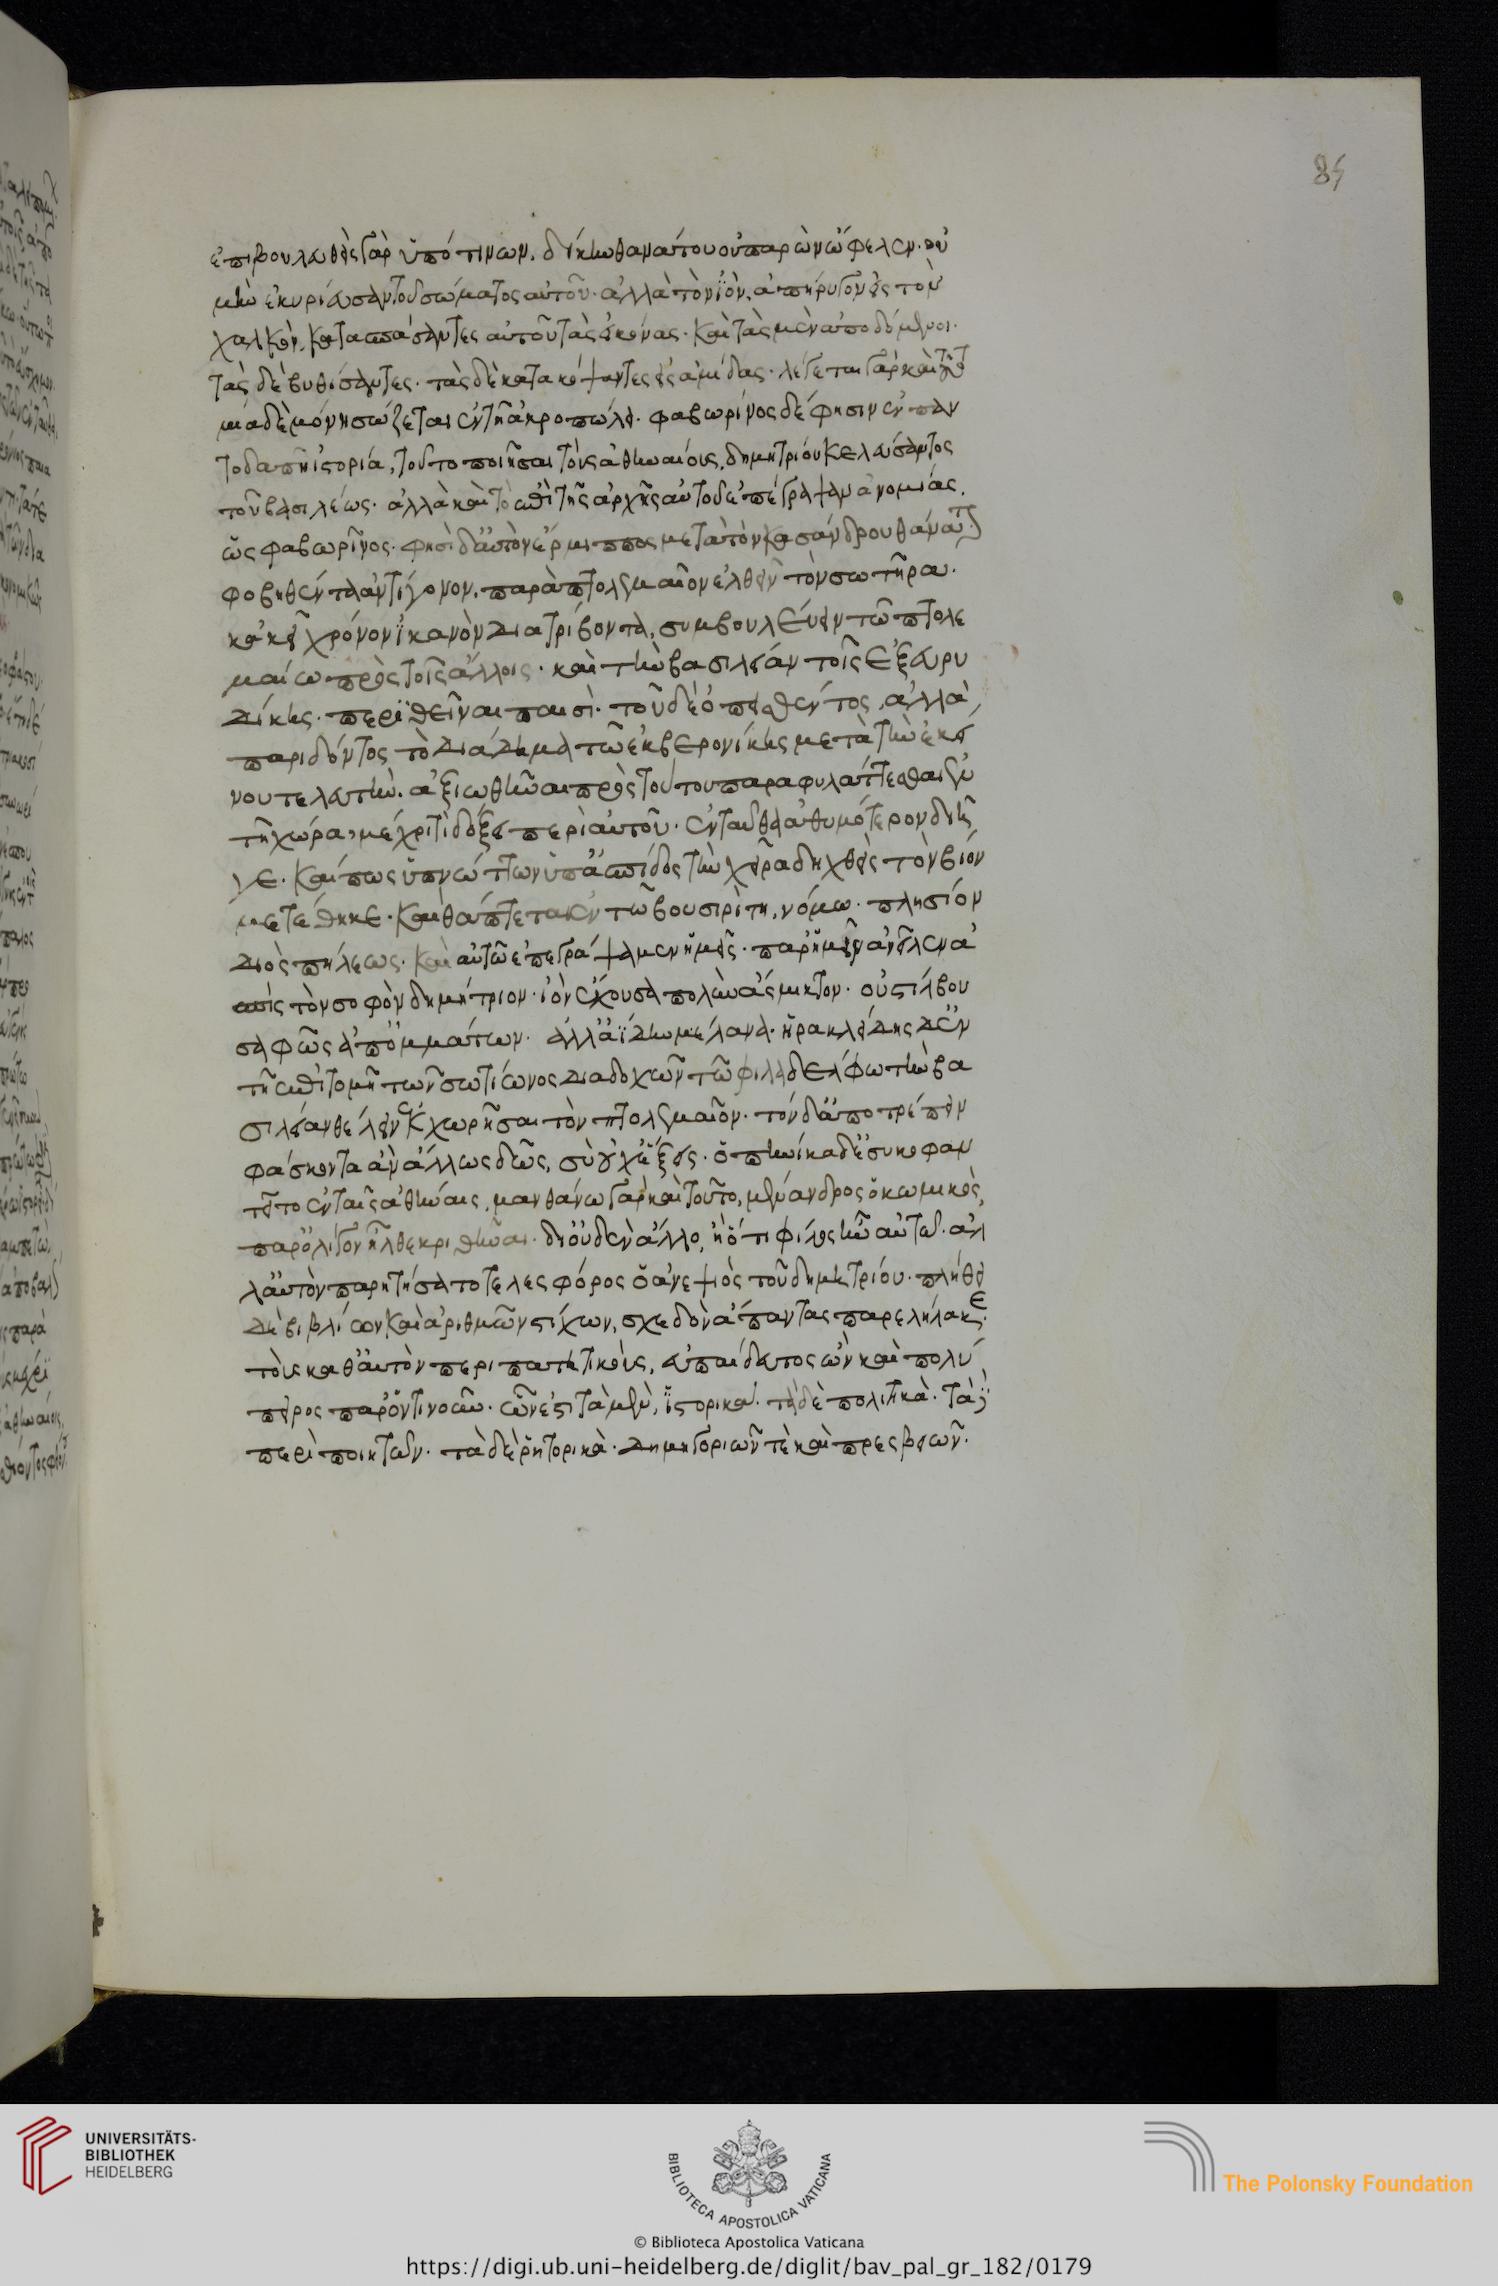 84
ἐπιβουλευθεὶς γὰρ ὑπό τινων. δίκην θανάτου οὐ παρὼν ὦφελεν. οὐ
μὴν ἐκυρίευσαν τοῦ σώματος αὐτοῦ. ἀλλὰ τὸν ἰὸν, ἀπήρυγον εἰς τὸν
χαλκὸν, κατασπάσαντες αὐτοῦ τὰς εἰκόνας. καὶ τὰς μὲν ἀποδόμενοι.
τὰς δὲ βυθίσαντες. τὰς δὲ κατακόψαντες εἰς ἀμίδας. λέγεται γὰρ καὶ τοῦτο
μία δὲ μόνη σώζεται ἐν τῇ ἀκροπώλει. φαβωρίνος δέ φησιν ἐν παν
τοδαπῇ ἱστορία, τοῦτο ποιῆσαι τοὺς ἀθηναίους, δημητρίου κελεύσαντος
τοῦ βασιλέως. ἀλλὰ καὶ τὸ ἐπὶ τῆς ἀρχῆς αὐτοῦ ἐπέγραψαν ἀνομίας,
ὥς φαβωρῖνος. φησὶ δ' αὐτὸν ἕρμιππος μετὰ τὸν κασάνδρου θάνατον
φοβηθέντα ἀντίγονον, παρὰ πτολεμαῖον ἐλθεῖν τὸν σωτῆρα.
κἀκεῖ χρόνον ἱκανὸν διατρίβοντα, συμβουλεύειν τῶ πτολε
μαίω πρὸς τοῖς ἄλλοις. καὶ τὴν βασιλείαν τοῖς ἐξ εὐρυ
δίκης. περιθεῖναι παισὶ. τοῦ δὲ ὀ πεισθέντος, ἀλλὰ
παριδόντος τὸ διάδημα τῶ ἐκ βερονίκης μετὰ τὴν ἐκεί
νου τελευτὴν. ἀξιωθῆναι πρὸς τούτου παραφυλάττεσθαι ἐν
τῇ χώρα, μέχρι τὶ δόξει περὶ αὐτοῦ. ἐνταῦθα ἀθυμότερον διῆ
γε. καί πως ὑπνώττων ὑπ' ἀσπίδος τὴν χεῖρα δηχθεὶς τὸν βίον
μετέθηκε. καὶ θάπτεται ἐν τῶ βουσιρίτη, νόμω. πλησίον
διὸς πήλεως. καὶ αὐτῶ ἐπεγράψαμεν ἡμεῖς. παρ' ἡμεῖν ἀνεῖλεν ἀ
σπὶς τὸν σοφὸν δημήτριον. ἰὸν ἔχουσα πολὺν ἄσμικτον. οὐ στίλβου
σα φῶς ἀπ' ὀμμάτων. ἀλλ' ἀΐδην μέλανα. ἡρακλείδης δ' ἐν
τῇ ἐπιτομῇ τῶν σωτίωνος διαδοχῶν τῶ φιλαδέλφω τὴν βα
σιλείαν θέλειν ἐκχωρῆσαι τὸν πτολεμαῖον. τόν δ' ἀποτρέπειν
φάσκοντα ἀν ἄλλως δῶς, σὺ γ' οὐχ ἕξεις. ὁπηνίκα δ' ἐσυκοφαν
τεῖτο ἐν ταῖς ἀθήναις, μανθάνω γὰρ καὶ τοῦτο, μένανδρος ὁ κωμικὸς,
παρ' ὀλίγον ἦλθε κριθῆναι. δι' οὐδὲν ἄλλο, ἢ ὅτι φίλος ἦν αὐτῶ. ἀλ
λ' αὐτὸν παρητήσατο τελεσφόρος ὁ ἀνεψιὸς τοῦ δημητρίου. πλήθει
δὲ βιβλίων καὶ ἀριθμῶν στίχων, σχεδὸν ἅπαντας παρελήλακε
τοὺς καθ' αὐτὸν περιπατητικοὺς, εὐπαίδευτος ὢν καὶ πολύ
πειρος παρ' ὁντινοῦν. ὧν ἐστι τὰ μὲν, ἱστορικά. τὰ δὲ πολιτικὰ. τὰ δὲ
περὶ ποιητῶν. τὰ δὲ ῥητορικὰ. δημηγοριῶν τὲ καὶ πρεσβειῶν.
UNIVERSITÄTS-
BIBLIOTHEK
HEIDELBERG
BIBLIOTECA APOSTOLICA VATICANA
The Polonsky Foundation
© Biblioteca Apostolica Vaticana
https://digi.ub.uni-heidelberg.de/diglit/bav_pal_gr_182/0179